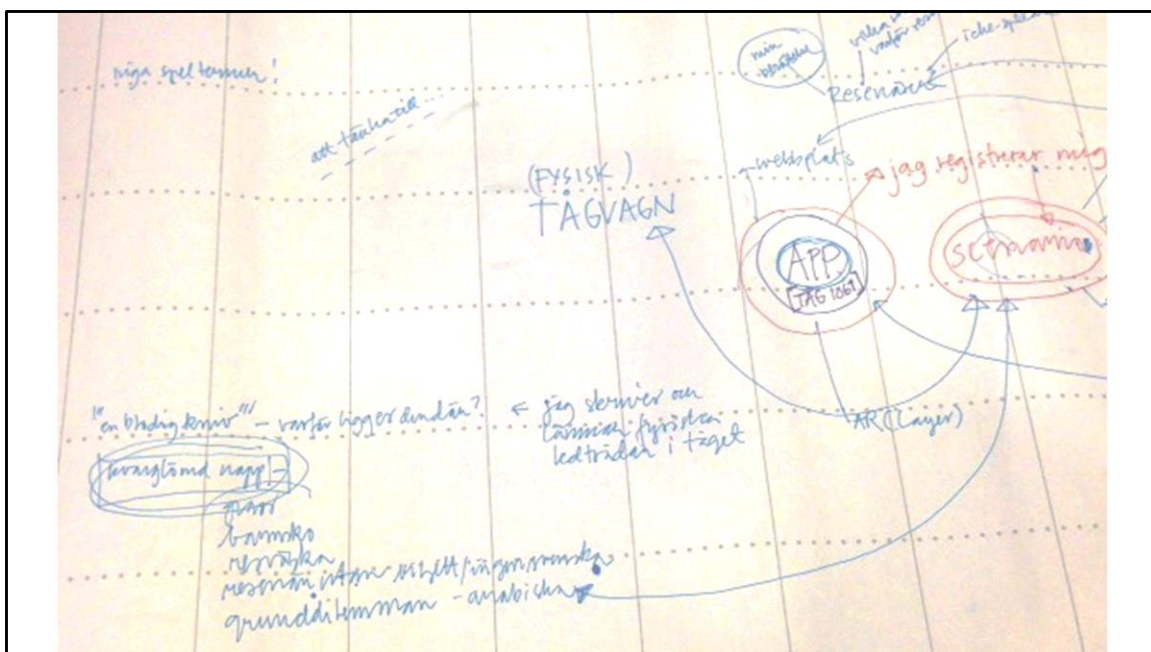 inga speltermer!
att tänka till...
min berättelse
varför
icke-
Resenärer
webbplats
jag registrerar mig
(FYSISK)
TÅGVAGN
APP
[TÅG 1061]
scenario
AR (Layer)
"en blodig kniv" – varför ligger den där?
← jag skriver och
lämnar fysiska
ledtrådar i tåget
kvarglömd napp! –
barnsko
resväska
grunddilemman – arabiska